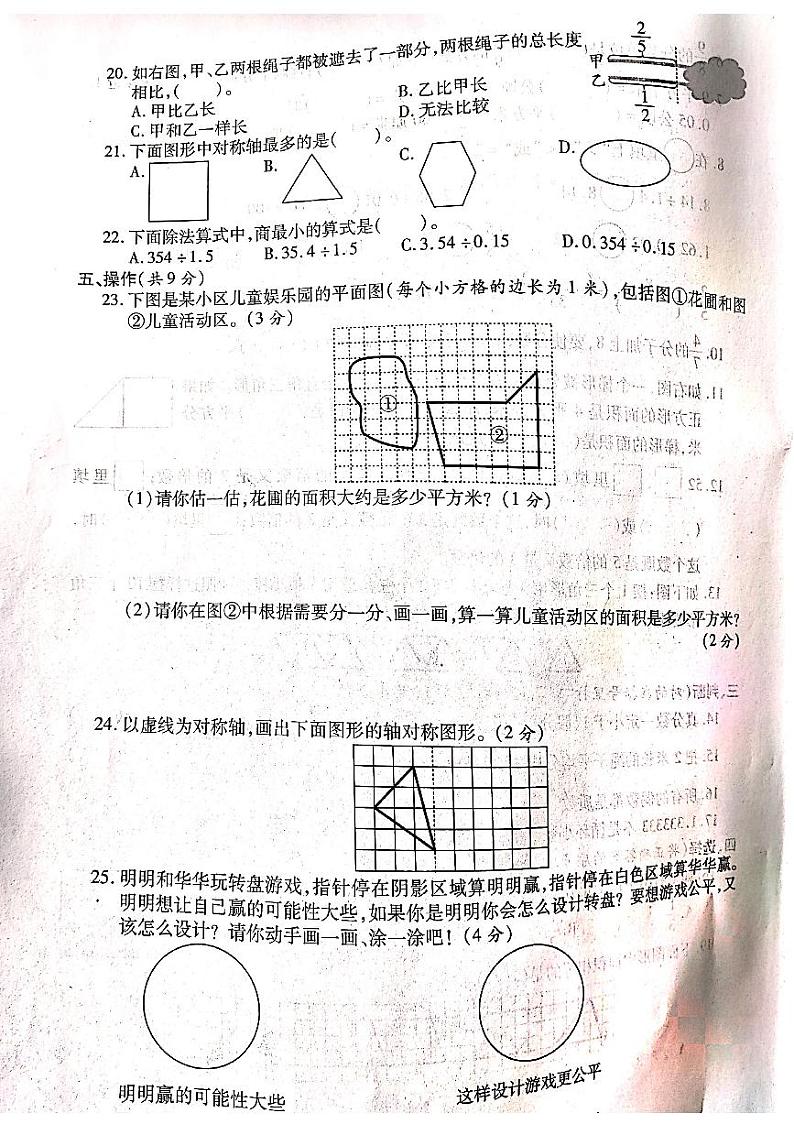 20. 如右图,甲、乙两根绳子都被遮去了一部分,两根绳子的总长度
相比,(　　)。
A. 甲比乙长
B. 乙比甲长
C. 甲和乙一样长
D. 无法比较
甲 2/5
乙 1/2
21. 下面图形中对称轴最多的是(　　)。
A.
B.
C.
D.
22. 下面除法算式中,商最小的算式是(　　)。
A. 354÷1.5
B. 35.4÷1.5
C. 3.54÷0.15
D. 0.354÷0.15
五、操作(共9分)
23. 下图是某小区儿童娱乐园的平面图(每个小方格的边长为1米),包括图①花圃和图
②儿童活动区。(3分)
①
②
(1)请你估一估,花圃的面积大约是多少平方米?(1分)
(2)请你在图②中根据需要分一分、画一画,算一算儿童活动区的面积是多少平方米?
(2分)
24. 以虚线为对称轴,画出下面图形的轴对称图形。(2分)
25. 明明和华华玩转盘游戏,指针停在阴影区域算明明赢,指针停在白色区域算华华赢。
明明想让自己赢的可能性大些,如果你是明明你会怎么设计转盘?要想游戏公平,又
该怎么设计?请你动手画一画、涂一涂吧!(4分)
明明赢的可能性大些
这样设计游戏更公平